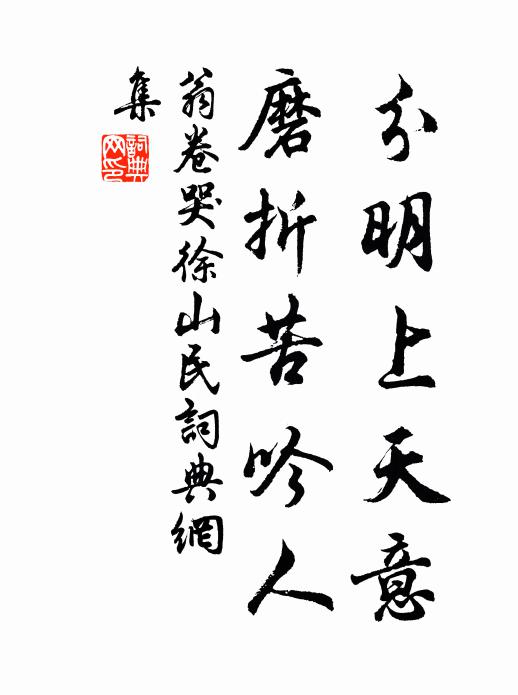 分明上天意
磨折苦吟人
翁卷哭徐山民詞典網
集
詞典
网印